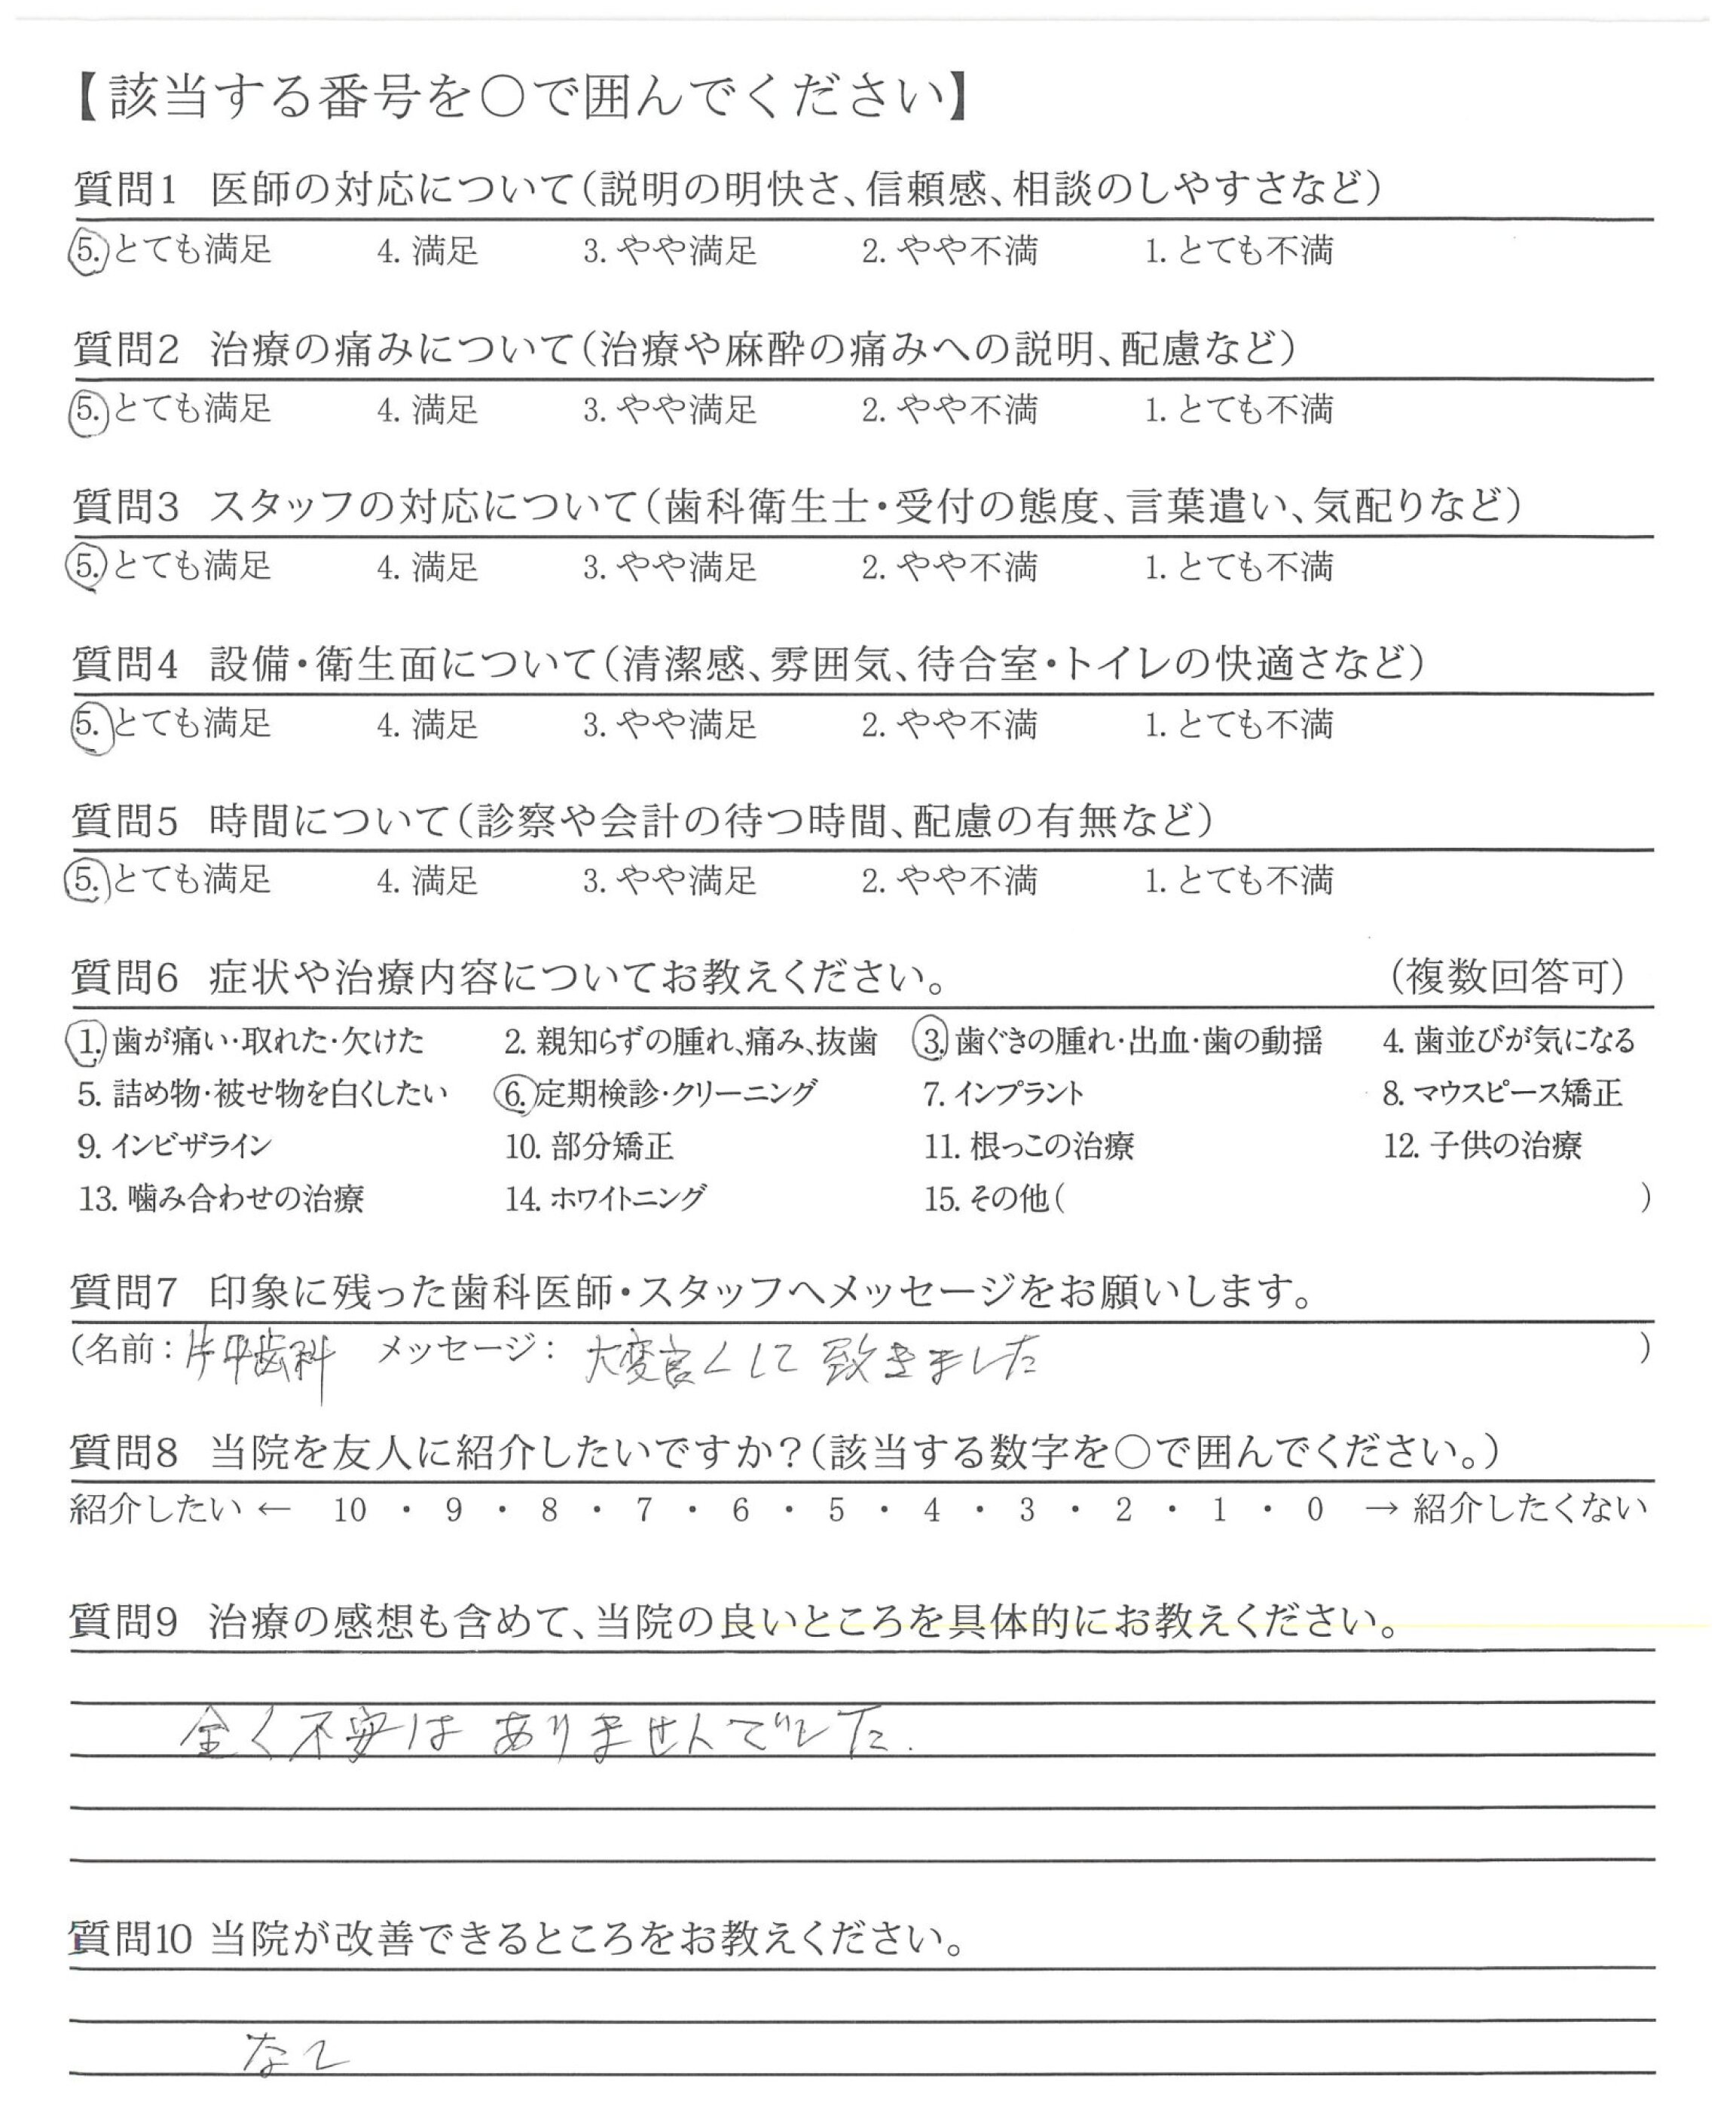 【該当する番号を○で囲んでください】
質問1 医師の対応について(説明の明快さ、信頼感、相談のしやすさなど)
5. とても満足 4. 満足 3. やや満足 2. やや不満 1. とても不満
質問2 治療の痛みについて(治療や麻酔の痛みへの説明、配慮など)
5. とても満足 4. 満足 3. やや満足 2. やや不満 1. とても不満
質問3 スタッフの対応について(歯科衛生士・受付の態度、言葉遣い、気配りなど)
5. とても満足 4. 満足 3. やや満足 2. やや不満 1. とても不満
質問4 設備・衛生面について(清潔感、雰囲気、待合室・トイレの快適さなど)
5. とても満足 4. 満足 3. やや満足 2. やや不満 1. とても不満
質問5 時間について(診察や会計の待つ時間、配慮の有無など)
5. とても満足 4. 満足 3. やや満足 2. やや不満 1. とても不満
質問6 症状や治療内容についてお教えください。 (複数回答可)
1. 歯が痛い・取れた・欠けた 2. 親知らずの腫れ、痛み、抜歯 3. 歯ぐきの腫れ・出血・歯の動揺 4. 歯並びが気になる
5. 詰め物・被せ物を白くしたい 6. 定期検診・クリーニング 7. インプラント 8. マウスピース矯正
9. インビザライン 10. 部分矯正 11. 根っこの治療 12. 子供の治療
13. 噛み合わせの治療 14. ホワイトニング 15. その他( )
質問7 印象に残った歯科医師・スタッフへメッセージをお願いします。
(名前:片平歯科 メッセージ: 大変良くして致きました )
質問8 当院を友人に紹介したいですか?(該当する数字を○で囲んでください。)
紹介したい ← 10 ・ 9 ・ 8 ・ 7 ・ 6 ・ 5 ・ 4 ・ 3 ・ 2 ・ 1 ・ 0 → 紹介したくない
質問9 治療の感想も含めて、当院の良いところを具体的にお教えください。
全く不安はありませんでした.
質問10 当院が改善できるところをお教えください。
なし